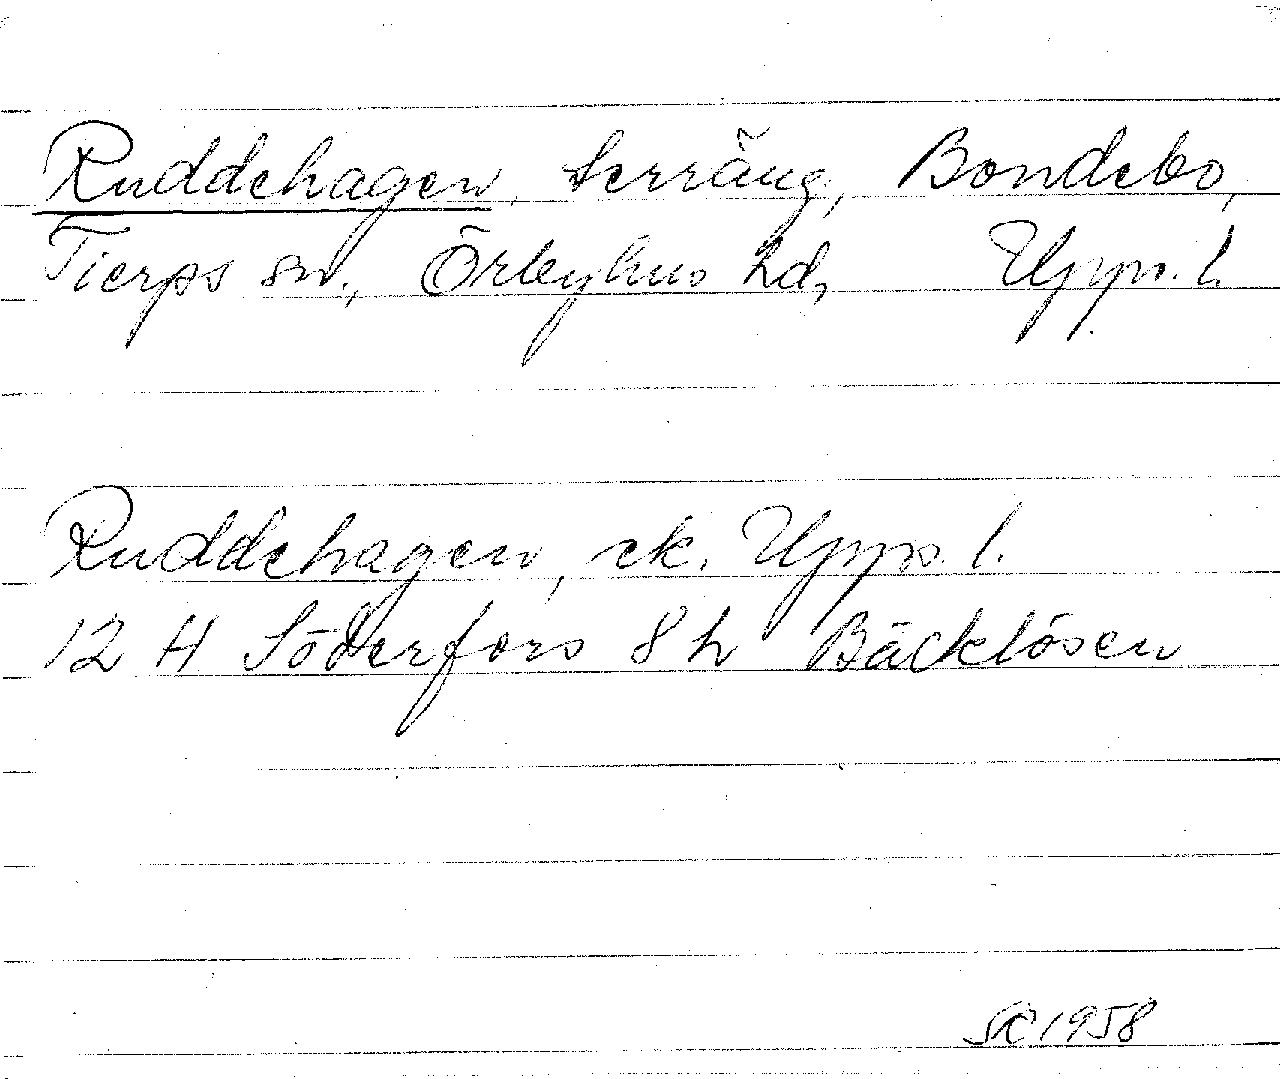 Ruddehagen, terräng, Bondebo,
Tierps sn., Örbyhus hd, Upps. l.
Ruddehagen, ek. Upps. l.
12 H Söderfors 8 h Bäcklösen
SC 1958